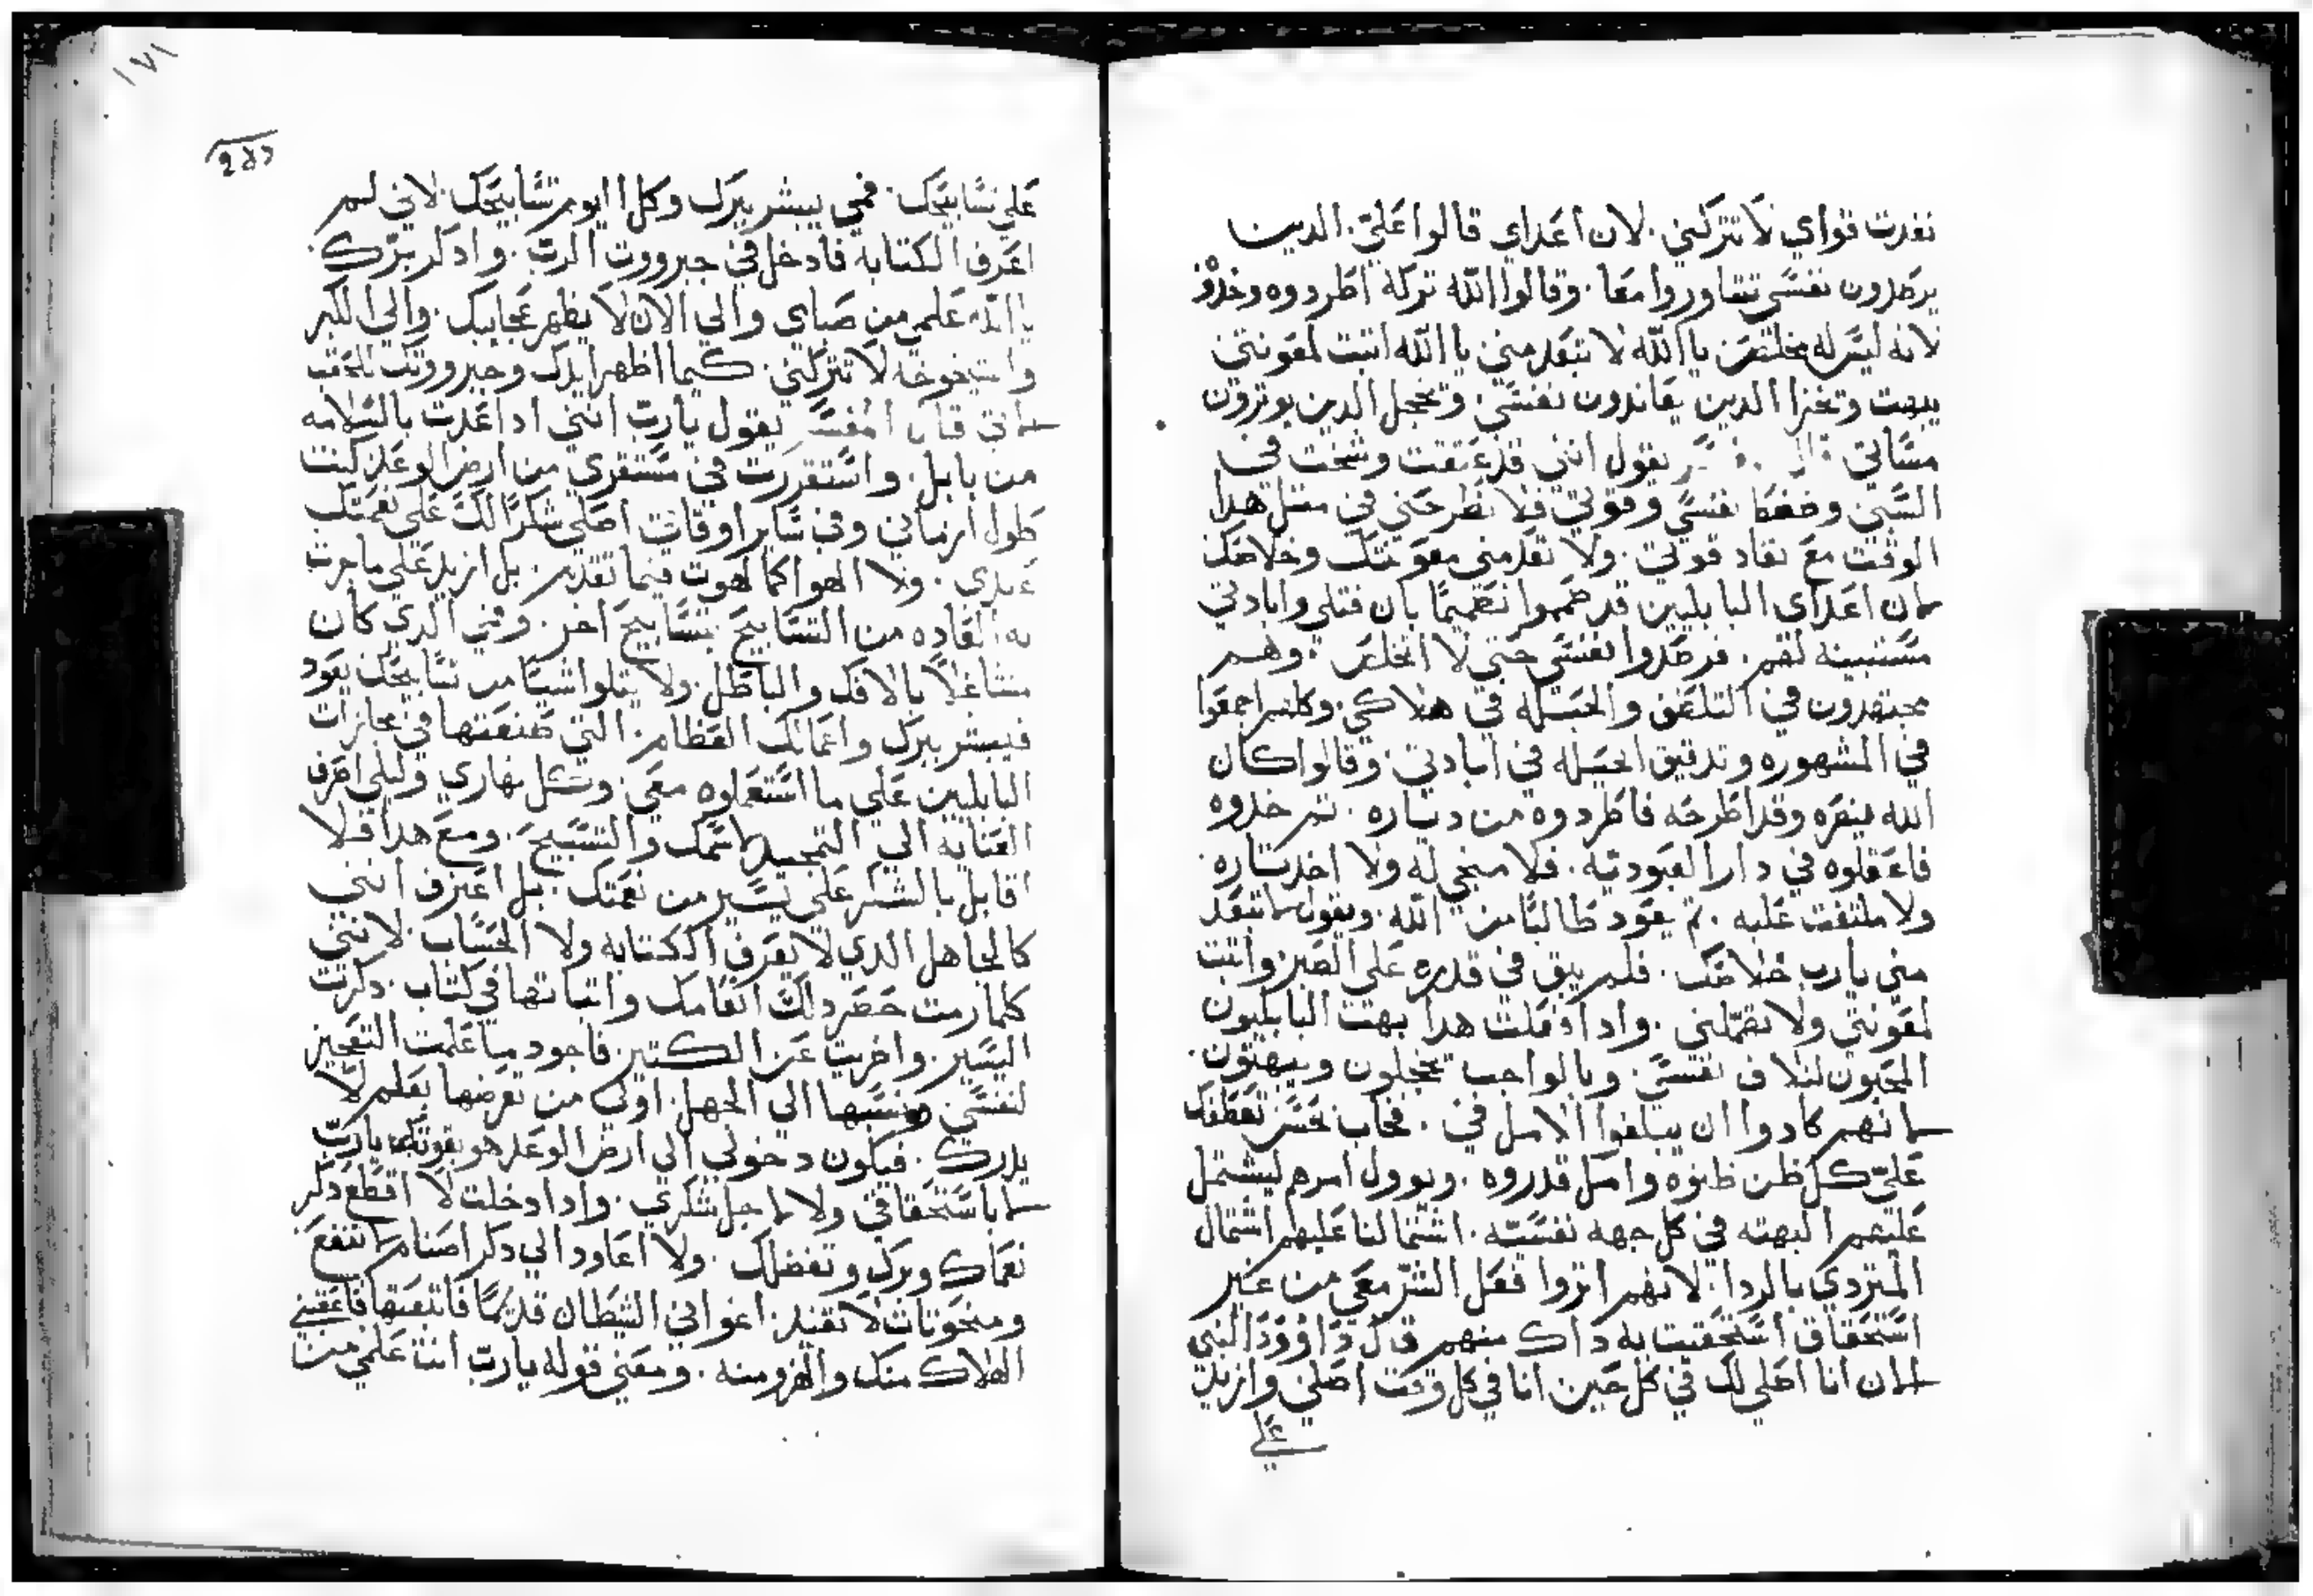 نفدت قواي لا تتركني. لان اعداي قالوا عليّ. الدين
يرصدون نفسي تشاوروا معا. وقالوا الله تركه اطردوه وخدوه
لانه ليس له مخلص. يا الله لا تبعد مني يا الله انبت لمعونتي
يبهت وتخزا الدين يعاندون نفسي. وتخجل الدين يوترون
مساتي قال يقول انني قد عتقت وشخت في
السبي وضعفا نفسي وقوتي فلا تطرحني في مثل هدا
الوقت مع نفاد قوتي. ولا تعدمني معونتك وخلاصك
لان اعداى البابليين قد صمموا تصميما بان قتلى وابادتي
مستبينه لهم. فرصدوا نفسي حتى لا اتخلص. وهم
مجتهدون في التلفق والحيله في هلاكي. وكلهم اجمعوا
في المشهوره وتدقيق الحيله في ابادتي. وقالوا كان
الله ينصره وقد اطرحه فاطردوه من دياره. ثم خدوه
فاعقلوه في دار العبوديه. فلا منجي له ولا اخد بتاره
ولا ملتفت عليه. ثم يعود طالبا من الله. ويقول لا تبعد
مني يارب خلاصك. فلم يبق في قدره على الصبر وانبت
لمعونتي ولا تهملني. وادا فعلت هدا بهت البابليون
المحبون لتلاف نفسي. وبالواجب يخجلون ويبهتون.
لانهم كادوا ان يبلغوا الامل في. فخاب بحسن تعطفك
عليّ كل ظن ظنوه وامل قدروه. ويوول امرهم ليشتمل
عليهم البهته في كل جهه نفسيه. اشتمالنا عليهم اشتمال
المتردي بالردا. لانهم اتروا فعل الشر معي من غير
استحقاق استحقيت به داك منهم قال داوود النبي
لان انا اصلي لك في كل حين انا في كل وقت اصلي وازيد
علي
١٧١
علي تسابيحك. فمي يبشر ببرك وكل اليوم تسابيحك. لاني لم
اعرف الكتابه فادخل في جبرووت الرب. وادكر برّك.
يا الله علمي من صباي والي الان لا يظهر عجايبك. والي الكبر
والشيخوخه لا تتركني. كيما اظهر ايدك وجبرووتك للحقب
لاتي قال المفسر يقول يارب انني ادا عدت بالسلامه
من بابل. واستقررت في مستقري من ارض الوعد كنت
طول ازماني وفي ساير اوقاتي اصلي شكرا لك على نعمتك
عندي. ولا الهوا كما لهوت فيما تقدم. بل ازيد على ما جرت
به العاده من التسابيح بتسابيح اخر. وفمي الدي كان
متشاغلا بالافك والباطل. ولا يتلوا شيا من تسابيحك يعود
فيبشر ببرك واعمالك العظام. التي صنعتها في مجازات
البابليين على ما استعملوه معي. وكل نهاري وليلي اصرف
العنايه الي التمجيد لاسمك والتسبيح. ومع هدا فلا
اقابل بالشكر على يسير من نعمتك. بل اعترف انني
كالجاهل الدي لا يعرف الكتابه ولا الحساب. لانني
كلما رمت حصر دلك انعامك واتباتها في كتاب. دكرت
اليسير. واخريت عن الكتير. فاجود ما علمت التعجيز
لنفسي ونسبها الى الجهل. اولى من تعرضها بعلم لا
يدرك. فيكون دخولي الي ارض الوعد هو بقوتك يارب
لا باستحقاقي ولا لاجل شكري. وادا دخلت لا اقطع دكر
نعماك وبرك وتفضلك. ولا اعاود الي دكر اصنام لا تنفع
ومنحوتات لا تفيد. اغواني الشيطان قديما فاتبعتها فاعقبني
الهلاك منك والهزو منه. ومعني قوله يارب انت علمي من